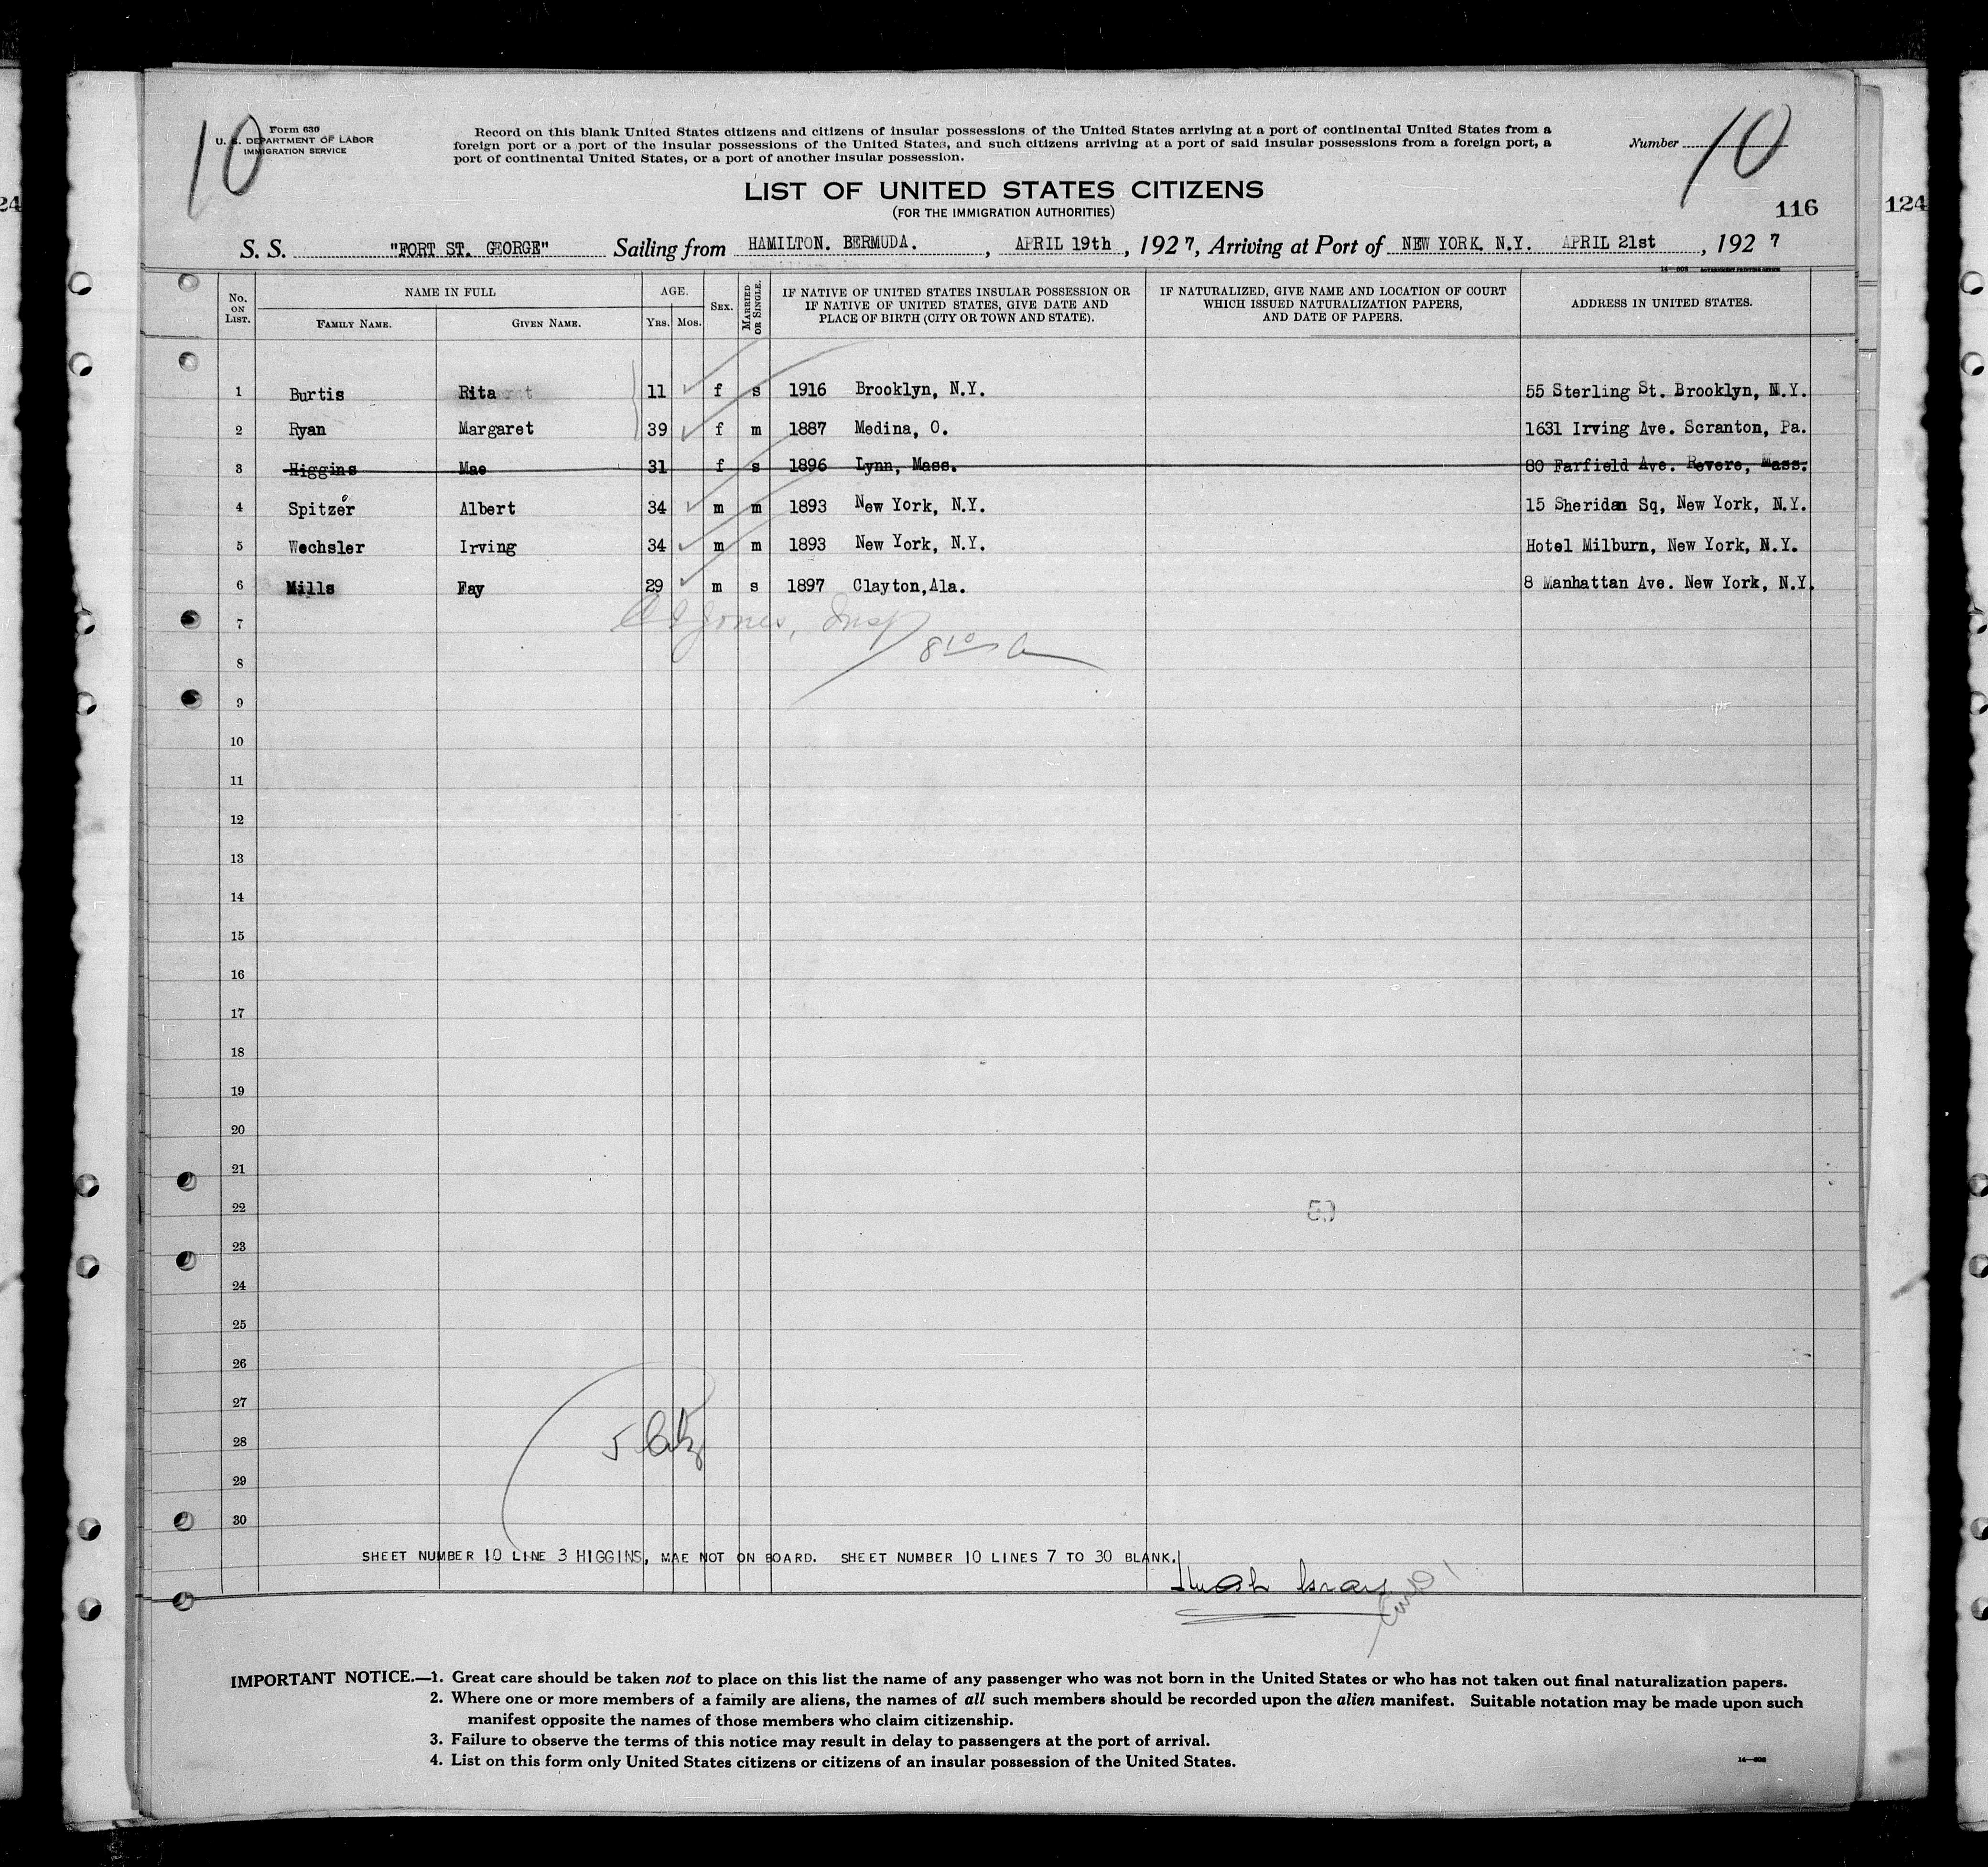 10
Form 630
U. S. DEPARTMENT OF LABOR
IMMIGRATION SERVICE
Record on this blank United States citizens and citizens of insular possessions of the United States arriving at a port of continental United States from a
foreign port or a port of the insular possessions of the United States, and such citizens arriving at a port of said insular possessions from a foreign port, a
port of continental United States, or a port of another insular possession.
Number 10
LIST OF UNITED STATES CITIZENS
(FOR THE IMMIGRATION AUTHORITIES)
24
116
124
S. S. "FORT ST. GEORGE" Sailing from HAMILTON. BERMUDA. , APRIL 19th , 1927, Arriving at Port of NEW YORK. N.Y. APRIL 21st , 1927
No. ON LIST. NAME IN FULL AGE. SEX. MARRIED OR SINGLE. IF NATIVE OF UNITED STATES INSULAR POSSESSION OR IF NATIVE OF UNITED STATES, GIVE DATE AND PLACE OF BIRTH (CITY OR TOWN AND STATE). IF NATURALIZED, GIVE NAME AND LOCATION OF COURT WHICH ISSUED NATURALIZATION PAPERS, AND DATE OF PAPERS. ADDRESS IN UNITED STATES.
FAMILY NAME. GIVEN NAME. YRS. MOS.
1 Burtis Rita 11 f s 1916 Brooklyn, N.Y. 55 Sterling St. Brooklyn, N.Y.
2 Ryan Margaret 39 f m 1887 Medina, O. 1631 Irving Ave. Scranton, Pa.
3 Higgins Mae 31 f s 1896 Lynn, Mass. 80 Farfield Ave. Revere, Mass.
4 Spitzer Albert 34 m m 1893 New York, N.Y. 15 Sheridan Sq, New York, N.Y.
5 Wechsler Irving 34 m m 1893 New York, N.Y. Hotel Milburn, New York, N.Y.
6 Mills Fay 29 m s 1897 Clayton, Ala. 8 Manhattan Ave. New York, N.Y.
7 Jones, Insp
8
9
10
11
12
13
14
15
16
17
18
19
20
21
22
23
24
25
26
27
28 5 Citz
29
30
SHEET NUMBER 10 LINE 3 HIGGINS, MAE NOT ON BOARD. SHEET NUMBER 10 LINES 7 TO 30 BLANK.
IMPORTANT NOTICE.—1. Great care should be taken not to place on this list the name of any passenger who was not born in the United States or who has not taken out final naturalization papers.
2. Where one or more members of a family are aliens, the names of all such members should be recorded upon the alien manifest. Suitable notation may be made upon such
manifest opposite the names of those members who claim citizenship.
3. Failure to observe the terms of this notice may result in delay to passengers at the port of arrival.
4. List on this form only United States citizens or citizens of an insular possession of the United States.